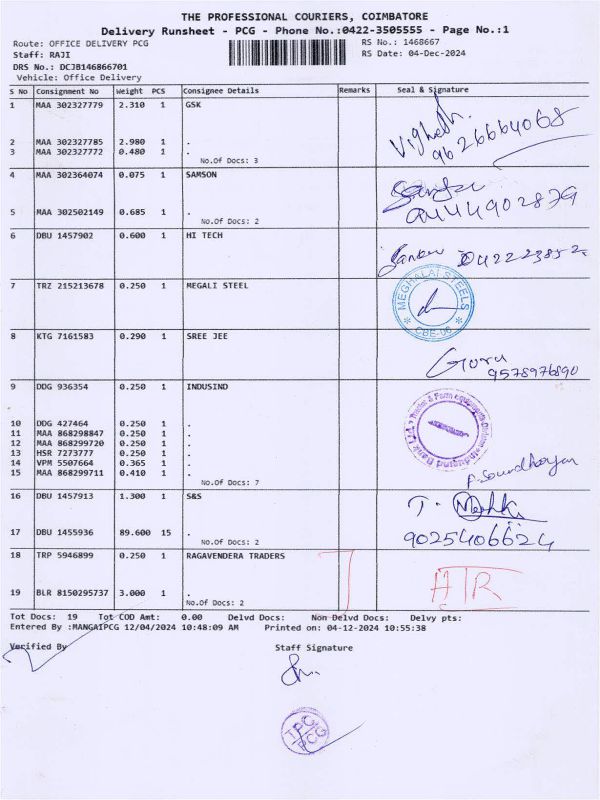 THE PROFESSIONAL COURIERS, COIMBATORE
Delivery Runsheet - PCG - Phone No.:0422-3505555 - Page No.:1
Route: OFFICE DELIVERY PCG RS No.: 1468667
Staff: RAJI RS Date: 04-Dec-2024
DRS No.: DCJB146866701
Vehicle: Office Delivery
S No Consignment No Weight PCS Consignee Details Remarks Seal & Signature
1 MAA 302327779 2.310 1 GSK
9626664068
2 MAA 302327785 2.980 1 .
3 MAA 302327772 0.480 1 .
No.Of Docs: 3
4 MAA 302364074 0.075 1 SAMSON
5 MAA 302502149 0.685 1 .
No.Of Docs: 2
6 DBU 1457902 0.600 1 HI TECH
7 TRZ 215213678 0.250 1 MEGALI STEEL
MEGHALAI STEELS
CBE-06
8 KTG 7161583 0.290 1 SREE JEE
Guru
9578976890
9 DDG 936354 0.250 1 INDUSIND
10 DDG 427464 0.250 1 .
11 MAA 868298847 0.250 1 .
12 MAA 868299720 0.250 1 .
13 HSR 7273777 0.250 1 .
14 VPM 5507664 0.365 1 .
15 MAA 868299711 0.410 1 .
No.Of Docs: 7
IndusInd Bank Ltd.
16 DBU 1457913 1.300 1 S&S
17 DBU 1455936 89.600 15 .
No.Of Docs: 2
9025406624
18 TRP 5946899 0.250 1 RAGAVENDERA TRADERS
19 BLR 8150295737 3.000 1 .
No.Of Docs: 2
Tot Docs: 19 Tot COD Amt: 0.00 Delvd Docs: Non Delvd Docs: Delvy pts:
Entered By :MANGAIPCG 12/04/2024 10:48:09 AM Printed on: 04-12-2024 10:55:38
Verified By Staff Signature
TPC
PCG